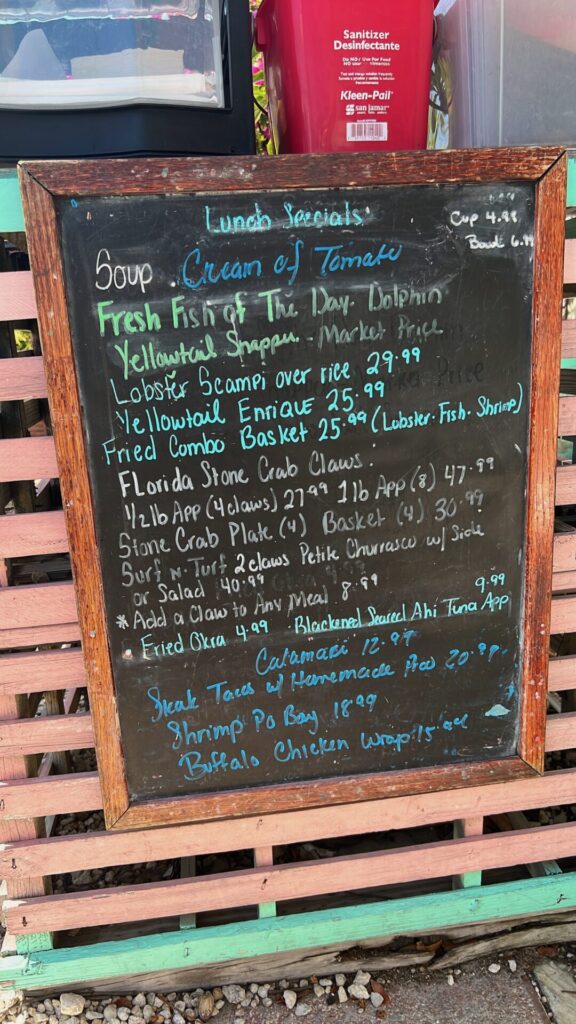 Sanitizer
Desinfectante
Do NOT Use For Food
Kleen-Pail
san jamar
Lunch Specials
Cup 4.99
Bowl 6.99
Soup Cream of Tomato
Fresh Fish of The Day. Dolphin
Yellowtail Snapper - Market Price
Lobster Scampi over rice 29.99
Yellowtail Enrique 25.99
Fried Combo Basket 25.99 (Lobster. Fish. Shrimp)
Florida Stone Crab Claws.
1/2 lb App (4 claws) 27.99 1 lb App (8) 47.99
Stone Crab Plate (4) Basket (4) 30.99
Surf N. Turf 2 claws Petite Churrasco w/ Side
or Salad 40.99
* Add a Claw to Any Meal 8.99
Fried Okra 4.99 Blackened Seared Ahi Tuna App 9.99
Calamari 12.99
Steak Tacos w/ Homemade 20.99.
Shrimp Po Boy 18.99
Buffalo Chicken Wrap 15.99